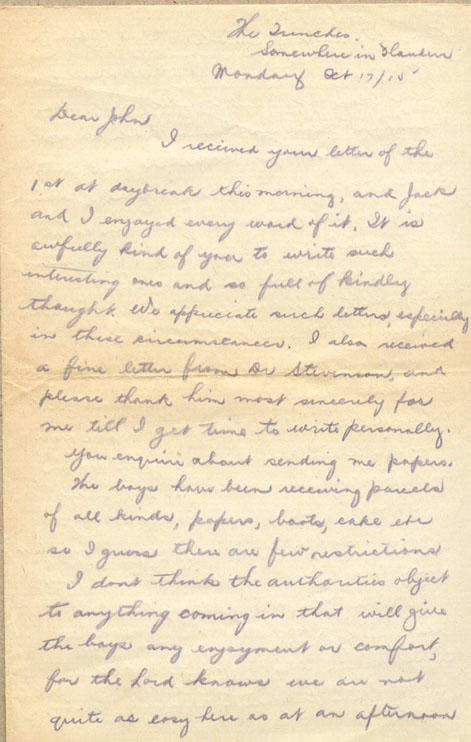 The Trenches.
Somewhere in Flanders
Monday Oct 17/15
Dear John
I received your letter of the
1st at daybreak this morning, and Jack
and I enjoyed every word of it. It is
awfully kind of you to write such
interesting ones and so full of kindly
thought. We appreciate such letters, especially
in these circumstances. I also received
a fine letter from Dr Stevenson, and
please thank him most sincerely for
me till I get time to write personally.
You enquire about sending me papers.
The boys have been receiving parcels
of all kinds, papers, boots, cake etc
so I guess there are few restrictions
I dont think the authorities object
to anything coming in that will give
the boys any enjoyment or comfort,
for the Lord knows we are not
quite as cosy here as at an afternoon